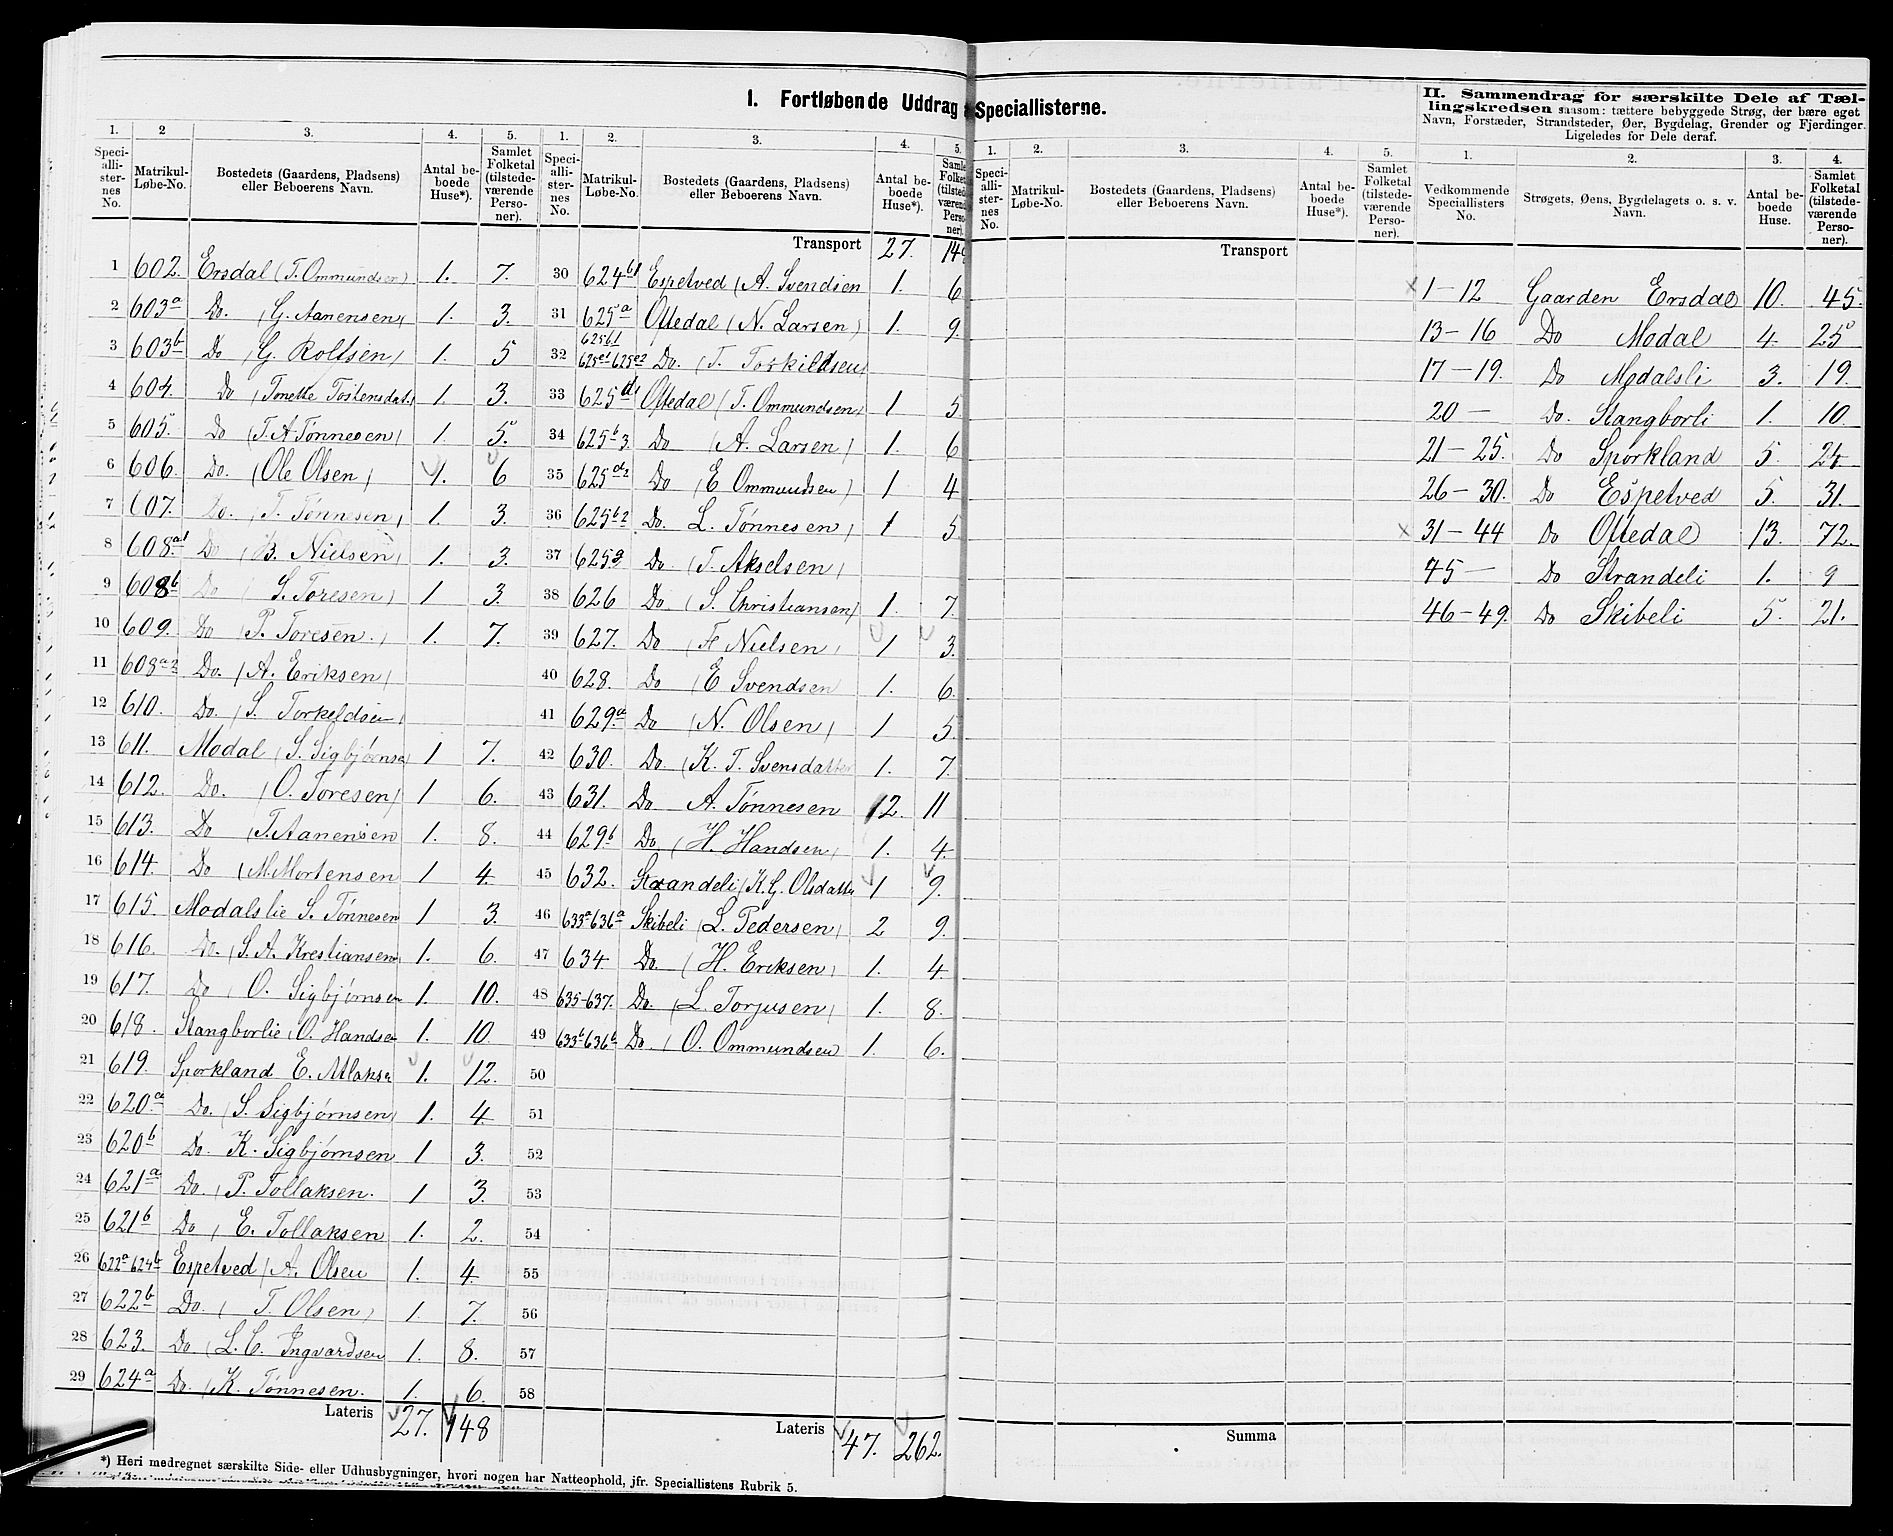 I. Fortløbende Uddrag Speciallisterne.
II. Sammendrag for særskilte Dele af Tæl-
lingskredsen saasom: tættere bebyggede Strøg, der bære eget
Navn, Forstæder, Strandsteder, Øer, Bygdelag, Grender og Fjerdinger.
Ligeledes for Dele deraf.
1. 2 3. 4. 5.
Speci-alli-ster-nes No. Matrikul-Løbe-No. Bostedets (Gaardens, Pladsens) eller Beboerens Navn. Antal be-boede Huse*). Samlet Folketal (tilstede-værende Perso-ner).
1 602. Ersdal (T. Ommundsen) 1. 7.
2 603a Do. (G. Aanensen) 1. 3.
3 603b Do (G. Rolfsen) 1. 5
4 604. Do (Tonette Tostensdat.) 1. 3.
5 605. Do (T. A Tönnesen) 1. 5.
6 606. Do. (Ole Olsen) 1. 6
7 607. Do. (T. Tönnesen) 1. 3.
8 608a1 Do (B. Nielsen) 1. 3.
9 608b Do (S. Toresen) 1 3.
10 609. Do (P. Toresen.) 1. 7.
11 608a2 Do. (A. Eriksen)
12 610. Do. (S. Torkeldsen)
13 611. Modal (S. Sigbjørnsen 1 7.
14 612. Do. (O. Toresen) 1 6.
15 613. Do (T. Aanensen 1. 8.
16 614. Do (M. Mortensen 1 4.
17 615. Modalslie S. Tönnesen 1 3.
18 616. Do. (S. A. Krestiansen 1. 6.
19 617. Do (O. Sigbjørnsen 1. 10.
20 618. Stangborlie (O. Handsen 1. 10.
21 619. Sporkland E. Atlaksen 1. 12.
22 620a Do. (S. Sigbjørnsen) 1. 4.
23 620b Do. K. Sigbjørnsen 1 3.
24 621a Do. (P. Tollaksen. 1 3.
25 621b Do (E. Tollaksen 1. 2.
26 622a 624b Espetved (A. Olsen 1. 4.
27 622b Do. (T. Olsen) 1. 7.
28 623. Do (L. C. Ingvardsen 1. 8.
29 624a Do. (K. Tönnesen. 1. 6.
Lateris 27. 148
*) Heri medregnet særskilte Side- eller Udhusbygninger, hvori nogen har Natteophold, jfr. Speciallistens Rubrik 5.
1. 2. 3. 4. 5.
Speci-alli-ster-nes No. Matrikul-Løbe-No. Bostedets (Gaardens, Pladsens) eller Beboerens Navn. Antal be-boede Huse*). Samlet Folketal (tilstede-værende Perso-ner).
Transport 27. 148
30 624b1 Espetved (A. Svendsen 1. 6
31 625a Oftedal (N. Larsen) 1. 9.
32 625b1 625c1-625c2 Do. (T. Torkildsen)
33 625d1 Oftedal (T. Ommundsen) 1 5
34 625b3. Do (A. Larsen) 1. 6
35 625d2 Do (E Ommundsen) 1 4
36 625b2 Do L. Tönnesen) 1 5
37 625 Do. (T. Akselsen)
38 626 Do (S. Christiansen) 1. 7.
39 627. Do (F Nielsen) 1 3.
40 628. Do (E Svendsen 1. 6.
41 629a Do (N. Olsen) 1 5.
42 630. Do (K. T. Svensdatter 1. 7.
43 631. Do A. Tönnesen 2. 11
44 629b Do. (H. Handsen) 1. 4.
45 632. Strandeli (K. G. Olsdatter 1 9.
46 633a 636a Skibeli (L. Pedersen) 2 9.
47 634 Do (H. Eriksen) 1. 4
48 635-637. Do. (L. Torjusen) 1. 8.
49 633b 636b Do. (O. Ommundsen 1. 6.
50
51
52
53
54
55
56
57
58
Lateris 47. 262.
1. 2. 3. 4. 5.
Speci-alli-ster-nes No. Matrikul-Løbe-No. Bostedets (Gaardens, Pladsens) eller Beboerens Navn. Antal be-boede Huse*). Samlet Folketal (tilstede-værende Perso-ner).
Transport
Summa
1. 2. 3. 4.
Vedkommende Speciallisters No. Strøgets, Øens, Bygdelagets o. s. v. Navn. Antal be-boede Huse. Samlet Folketal (tilstede-værende Perso-ner).
x 1-12 Gaarden Ersdal 10. 45.
13-16 Do Modal 4. 25
17-19. Do Modalsli 3. 19.
20- Do. Stangborli 1. 10.
21-25. Do Sporkland 5. 24
26-30. Do Espetved 5. 31.
x 31-44 Do Oftedal 13. 72.
45- Do Strandeli 1. 9
46-49. Do Skibeli 5. 21.